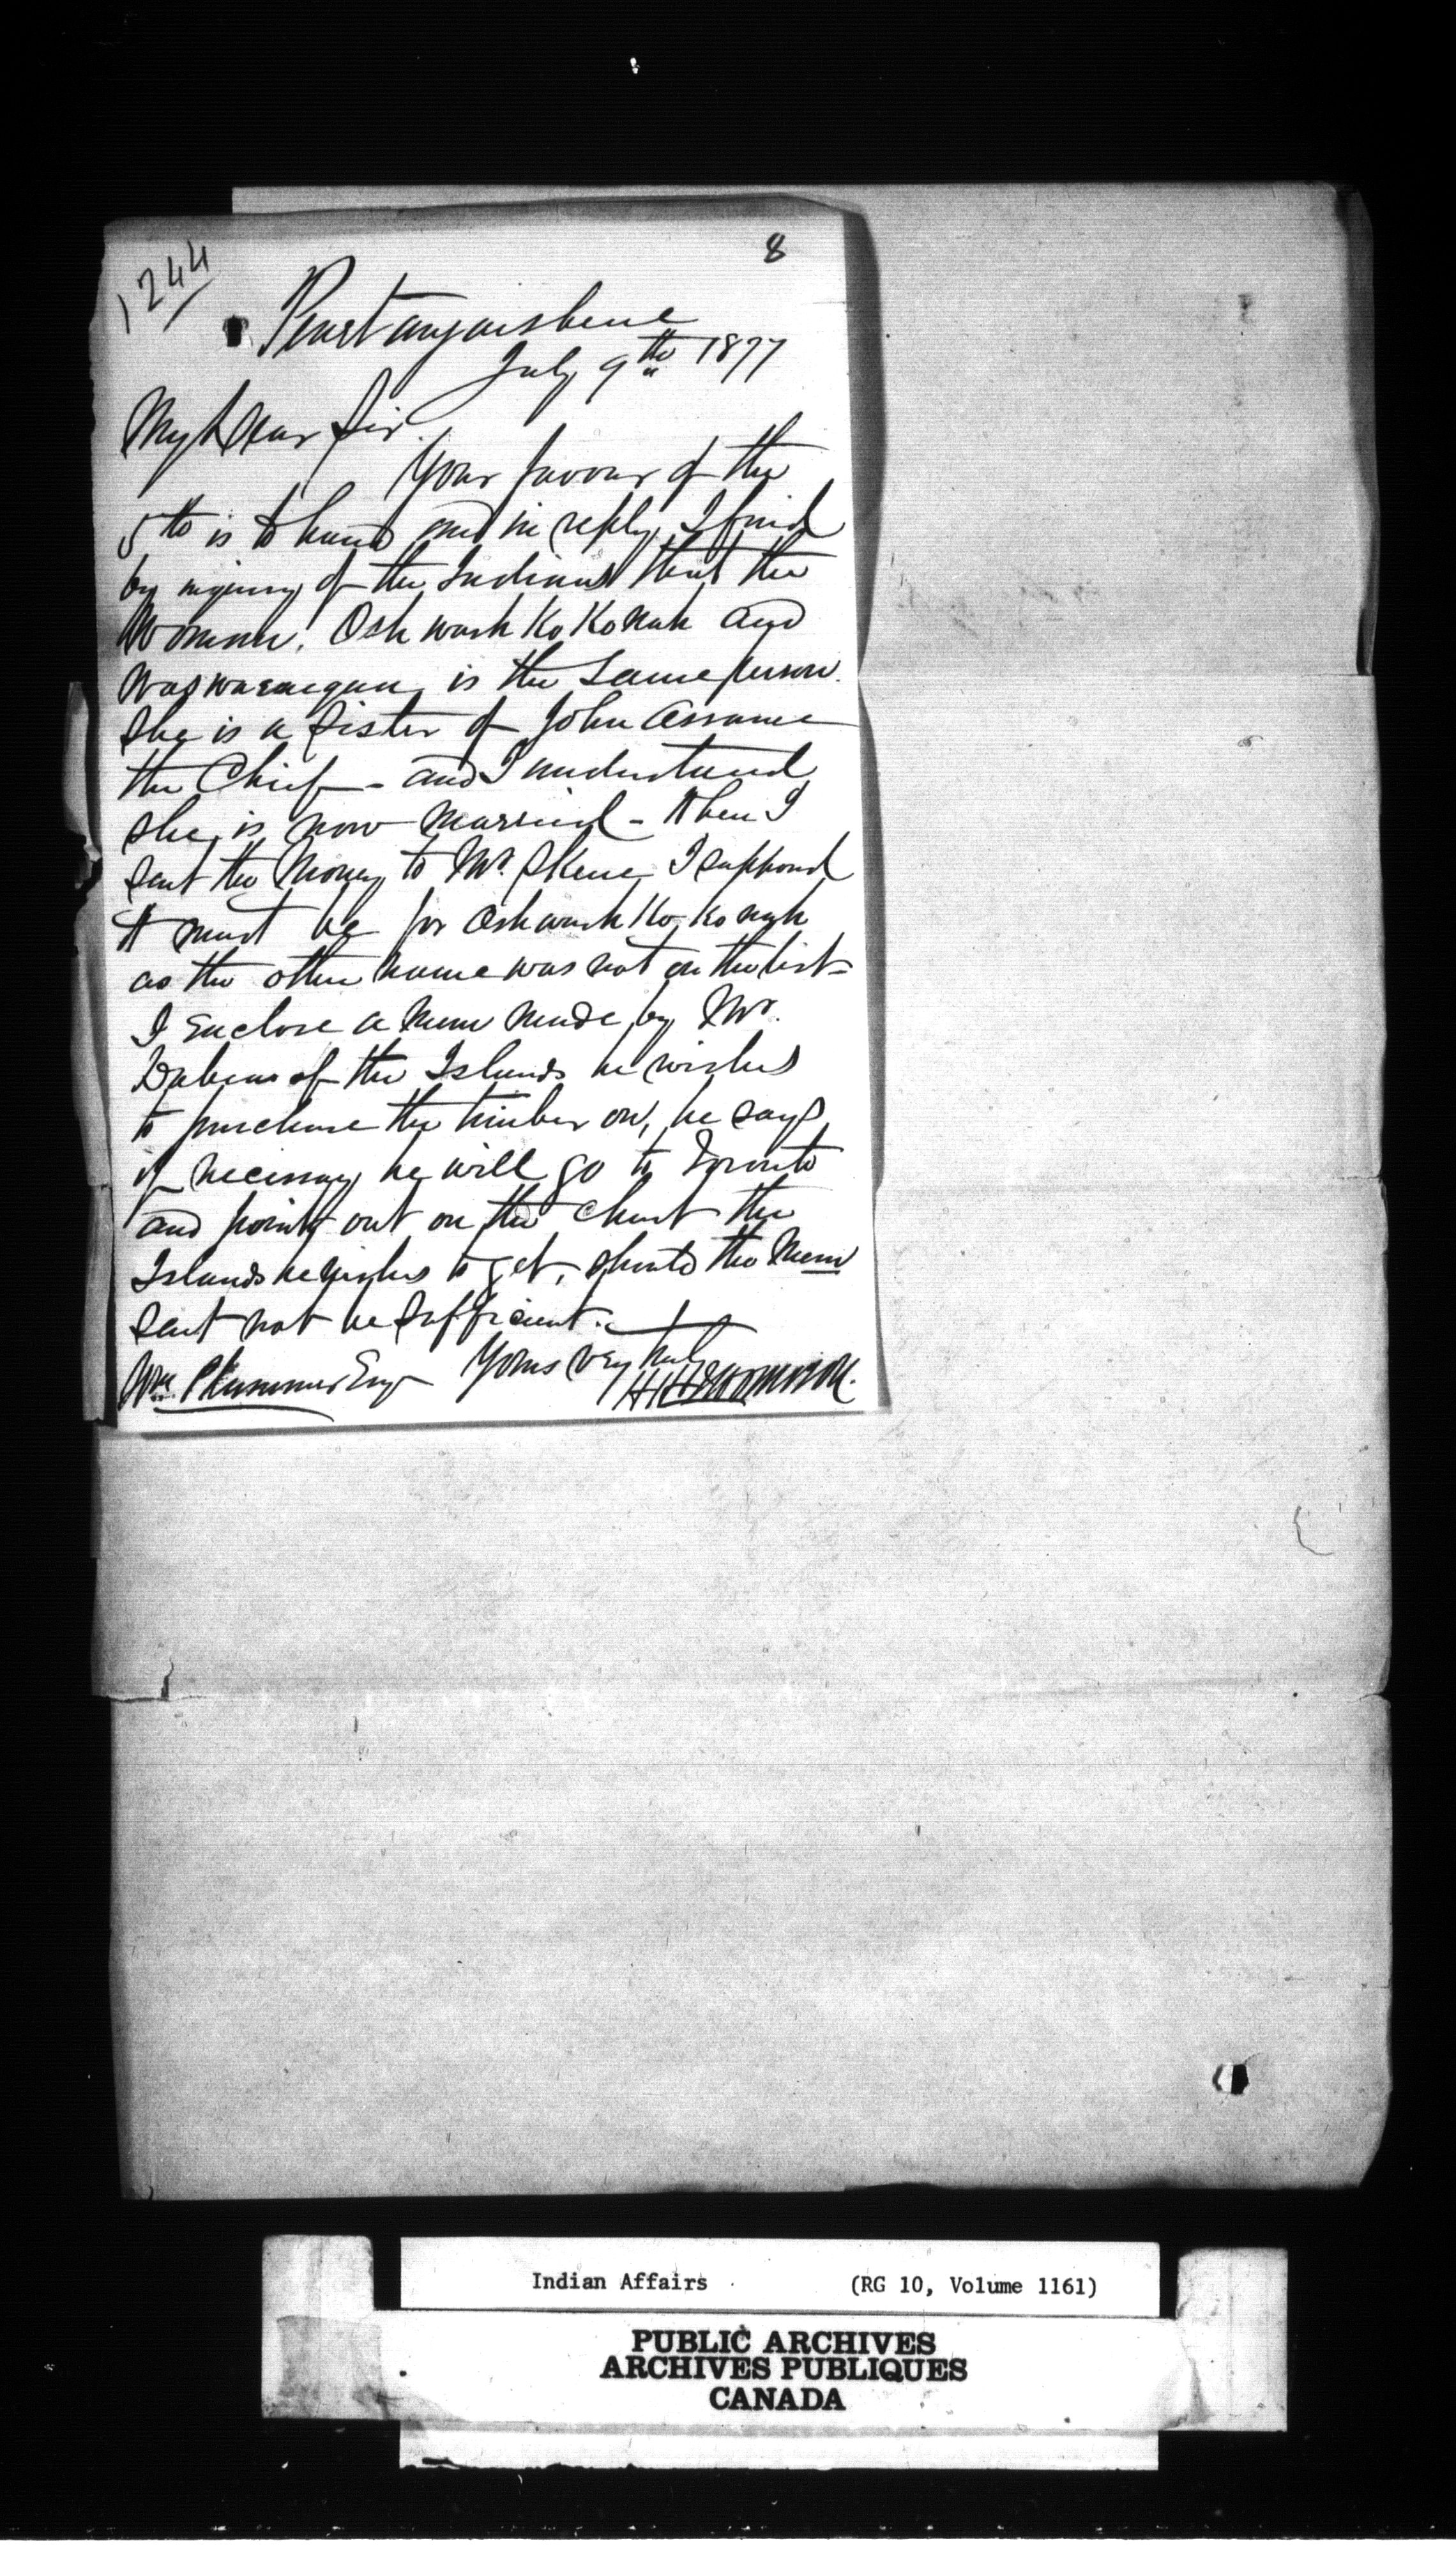 8
1244
Penetanguishene
July 9th 1877
My Dear Sir.
Your favour of the
5th is to hand and in reply, I find
by inquiry of the Indians that the
Woman. Osh wash Ko Ko nah and
is the Same person.
She is a Sister of John Assance
the Chief - and I understand
she is now married - When I
sent the Money to Mr. Skene I supposed
it must be for Oshwash Ko Ko nah
as the other name was not on the list -
I enclose a Mem made by Mr.
of the Islands he wishes
to purchase the timber on, he says
if necessary he will go to Toronto
and point out on the Chart the
Islands he wishes to get, should the Mem
sent not be Sufficient.
Yours very truly
Wm. Plummer Esqr
Indian Affairs (RG 10, Volume 1161)
PUBLIC ARCHIVES
ARCHIVES PUBLIQUES
CANADA